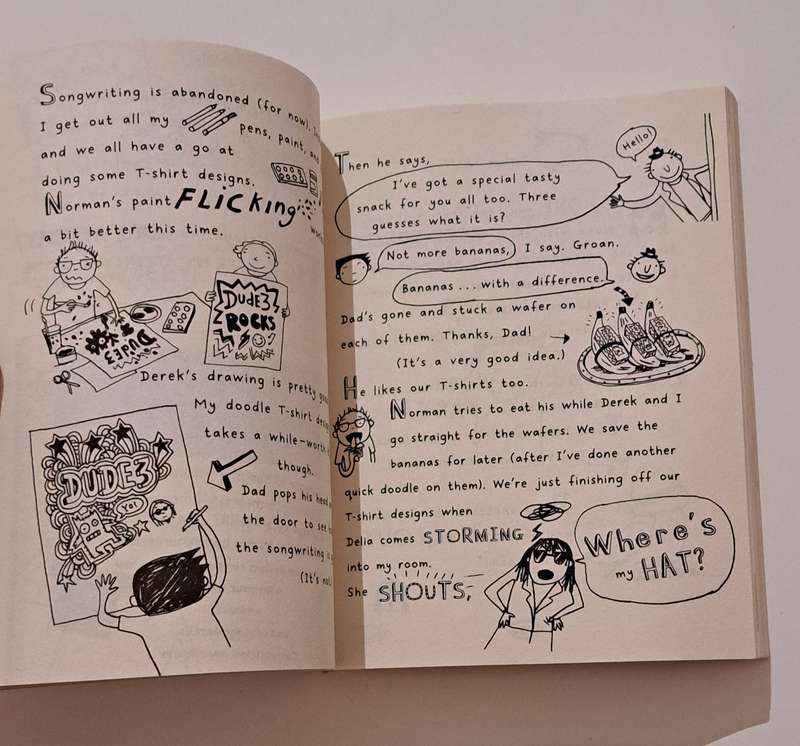 Songwriting is abandoned (for now).
I get out all my pens, paint, and
and we all have a go at
doing some T-shirt designs.
Norman's paint FLICKING
a bit better this time.
DUDE3
DUDE3
ROCKS
Derek's drawing is pretty
My doodle T-shirt
takes a while-worth
though.
DUDE3
Yo!
Dad pops his head
the door to see
the songwriting is
(It's not
Then he says,
Hello!
I've got a special tasty
snack for you all too. Three
guesses what it is?
Not more bananas, I say. Groan.
Bananas ... with a difference.
Dad's gone and stuck a wafer on
each of them. Thanks, Dad!
(It's a very good idea.)
He likes our T-shirts too.
Norman tries to eat his while Derek and I
go straight for the wafers. We save the
bananas for later (after I've done another
quick doodle on them). We're just finishing off our
T-shirt designs when
Delia comes STORMING
into my room.
She SHOUTS,
Where's
my HAT?